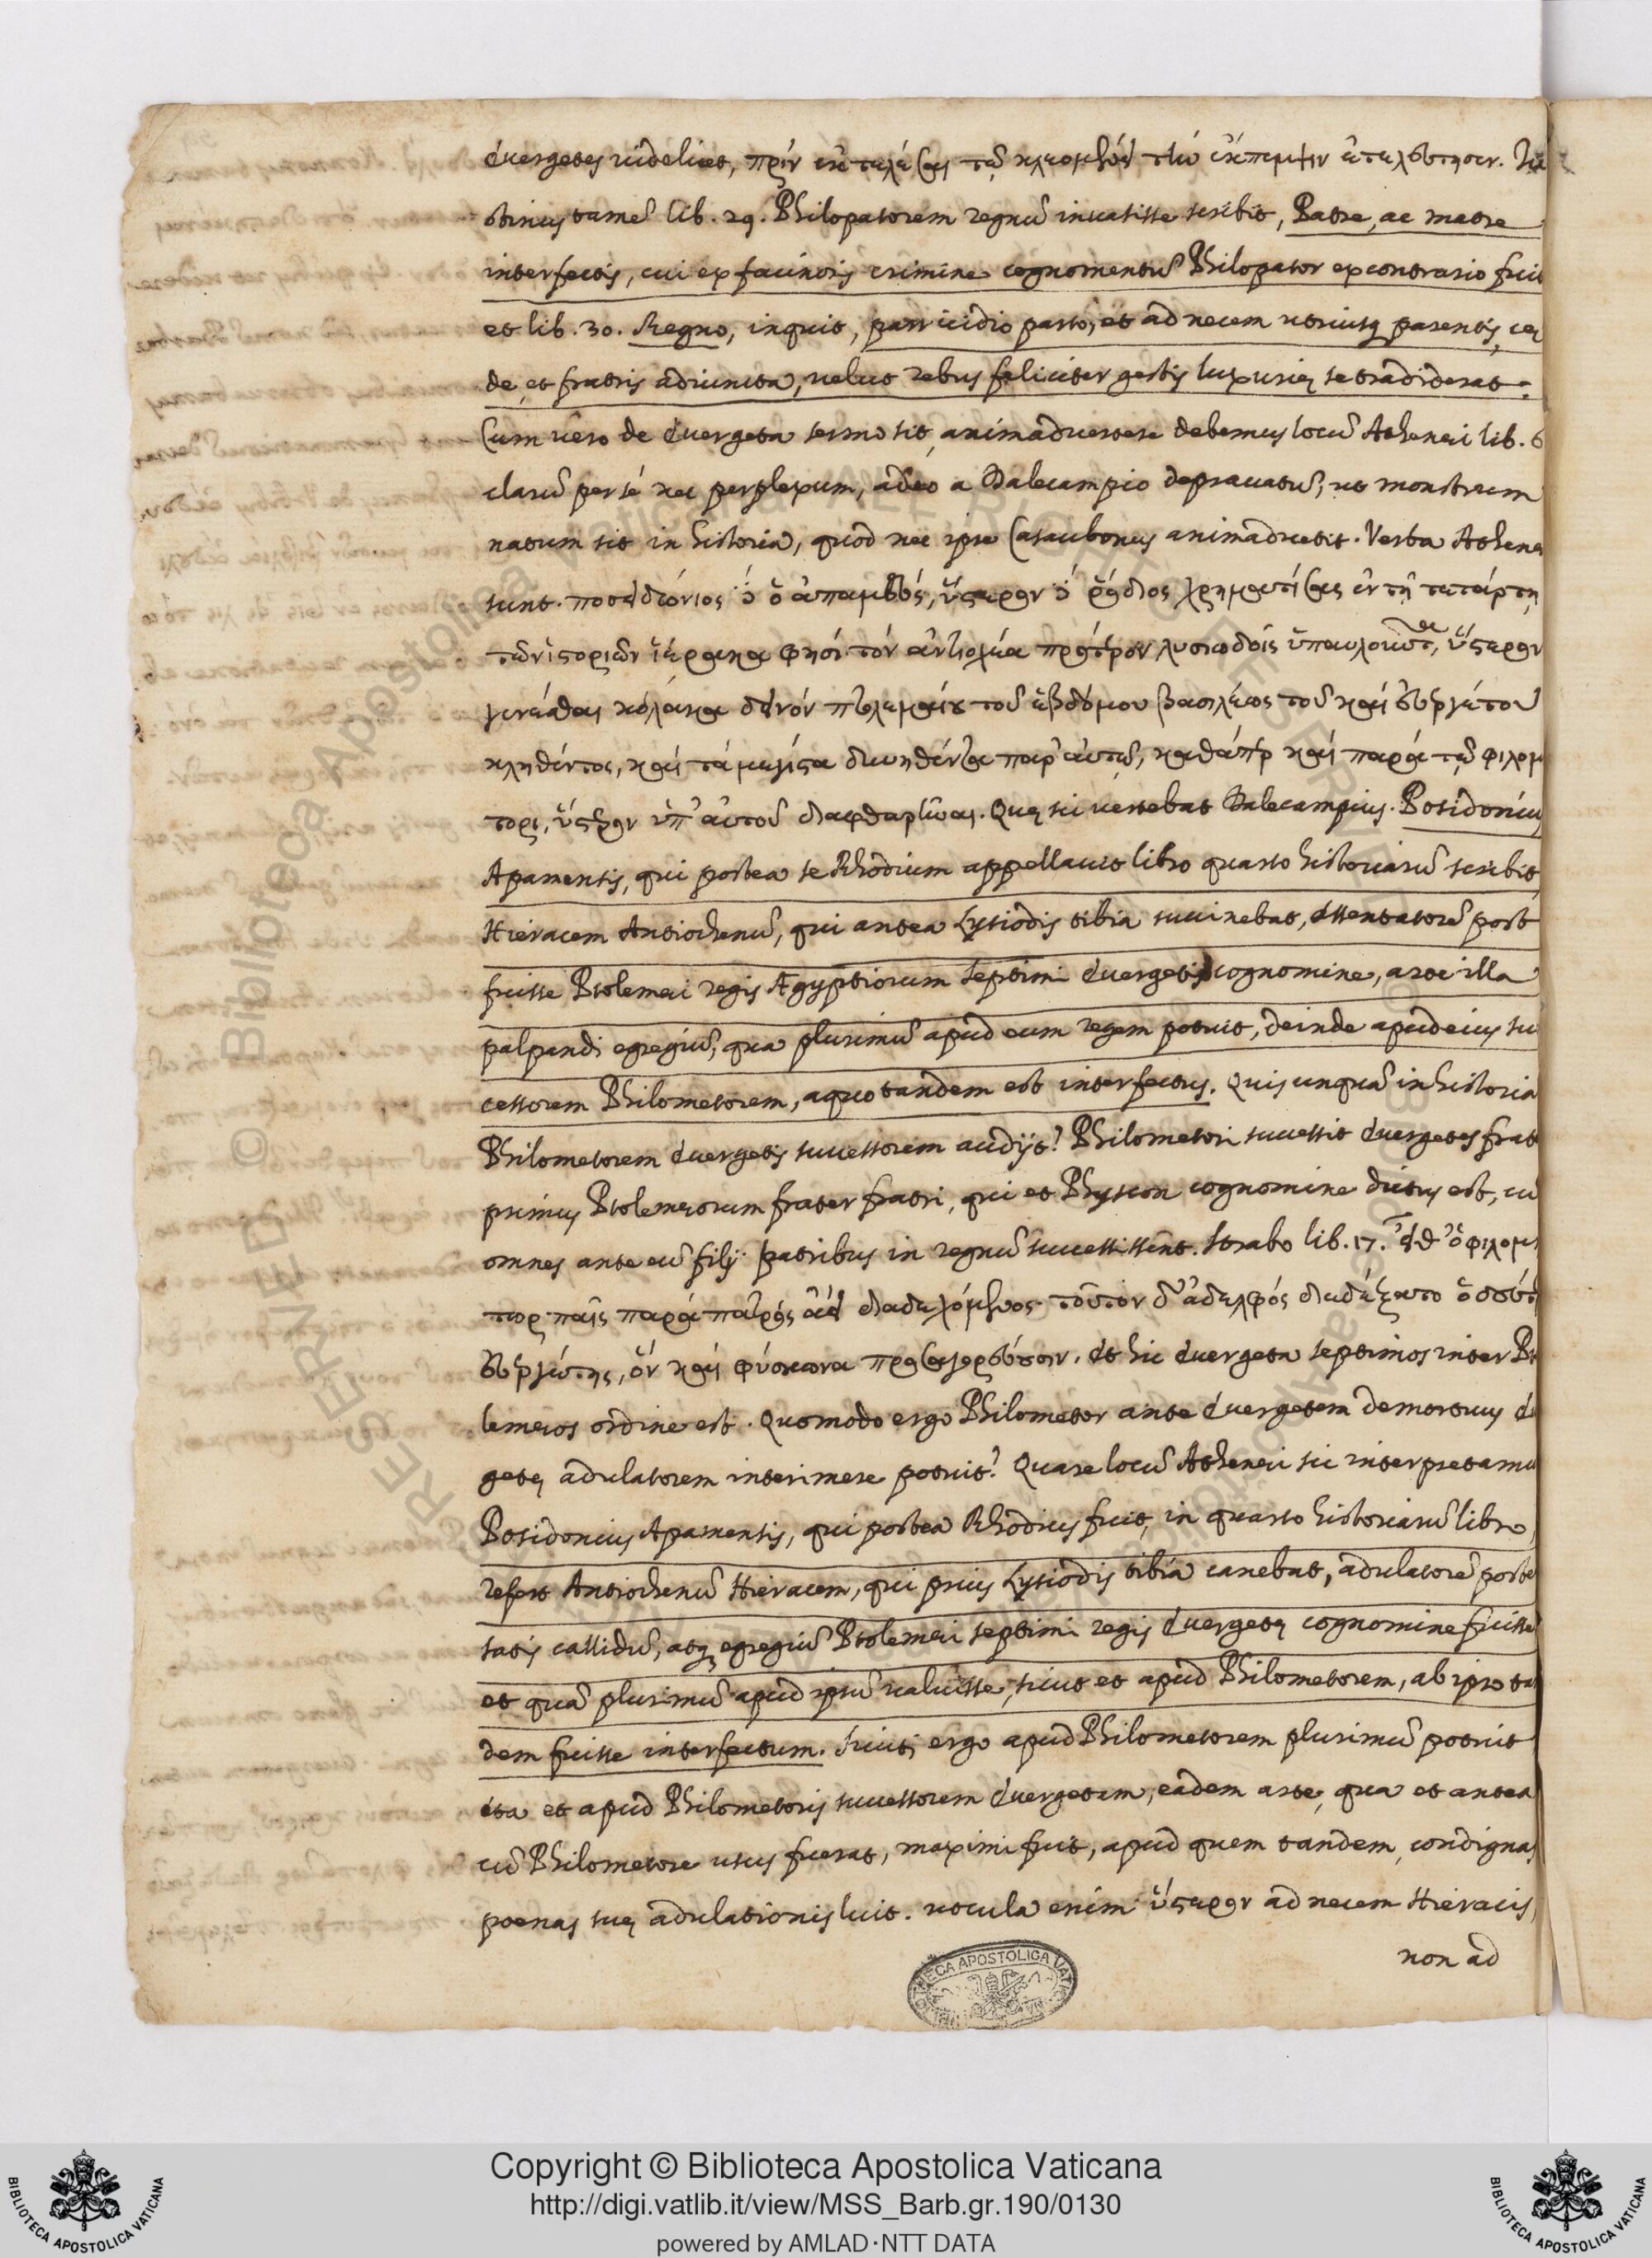 Euergetes videlicet, πρὶν ἐκτελέσαι τῷ κλεομένει τὴν ἔκπεμψιν ἐτελεύτησεν. Iu
stinus tamẽ lib. 29. Philopatorem regnũ invasisse scribit, Patre, ac matre
interfectis, cui ex facinoris crimine cognomentũ Philopator ex contrario fuit
et lib. 30. Regno, inquit, parricidio parto, et ad necem utriusq; parentis, cę
de, et fratris adiuncta, velut rebus feliciter gestis luxurię se tradiderat.
Cum vero de Euergeta sermo sit, animadvertere debemus locũ Athenęi lib. 6
clarũ per sé nec perplexum, adeo a Dalecampio depravatũ, ut monstrum
natum sit in historia, quod nec ipse Casaubonus animadvertit. Verba Athenęi
sunt. ποσειδώνιος δ' ὁ ἀπαμεύς, ὕστερον δ' ῥόδιος χρηματίσας ἐν τῇ τετάρτῃ
τῶν ἱστοριῶν ἱέρακα φησὶ τὸν ἀντιοχέα πρότερον λυσιῳδοῖς ὑπαυλοῦντα, ὕστερον
γενέσθαι κόλακα δεινόν πτολεμαίου τοῦ ἑβδόμου βασιλέως τοῦ καὶ εὐεργέτου
κληθέντος, καὶ τὰ μέγιστα δυνηθέντα παρ' αὐτῷ, καθάπερ καὶ παρὰ τῷ φιλομή
τορι, ὕστερον ὑπ' αὐτοῦ διαφθαρῆναι. Quę sic vertebat Dalecampius. Posidonius
Apamensis, qui postea se Rhodium appellavit libro quarto historiarũ scribit,
Hieracem Antiochenũ, qui antea Lysiodis tibia succinebat, Assentatorẽ post
fuisse Ptolemęi regis Ægyptiorum septimi Euergetis cognomine, arte illa
palpandi egregiũ, qua plurimũ apud eum regem potuit, deinde apud eius suc
cessorem Philometorem, a quo tandem est interfectus. Quis unquã in historia
Philometorem Euergetis successorem audijt? Philometori successit Euergetes frat
primus Ptolemęorum frater fratri, qui et Physcon cognomine dictus est, cũ
omnes ante eũ filij patribus in regnũ successissent. Strabo lib. 17. εἶθ' ὁ φιλομή
τωρ παῖς παρὰ πατρός ἀεὶ διαδεχόμενος. τοῦτον δ' ἀδελφός διεδέξατο ὁ δεύτε
εὐεργέτης, ὅν καὶ φύσκωνα προσαγορεύουσιν. Et hic Euergeta septimos inter Pto
lemęos ordine est. Quomodo ergo Philometor ante Euergetem demortuus Eu
getę adulatorem interimere potuit? Quare locũ Athenęi sic interpretamur
Posidonius Apamensis, qui postea Rhodius fuit, in quarto historiarũ libro,
refert Antiochenũ Hieracem, qui prius Lysiodis tibiâ canebat, adulatorẽ poste
satis callidũ, atq; egregiũ Ptolemęi septimi regis Euergetę cognomine fuisse
et quã plurimũ apud ipsũ valuisse, sicut et apud Philometorem, ab ipso ta
dem fuisse interfectum. Sicuti ergo apud Philometorem plurimũ potuit
ita et apud Philometoris successorem Euergetem, eadem arte, qua et antea
cũ Philometore usus fuerat, maximi fuit, apud quem tandem condignas
poenas suę adulationis luit. vocula enim ὕστερον ad necem Hieracis,
non ad
BIBLIOTECA APOSTOLICA VATICANA
Copyright © Biblioteca Apostolica Vaticana
http://digi.vatlib.it/view/MSS_Barb.gr.190/0130
powered by AMLAD·NTT DATA